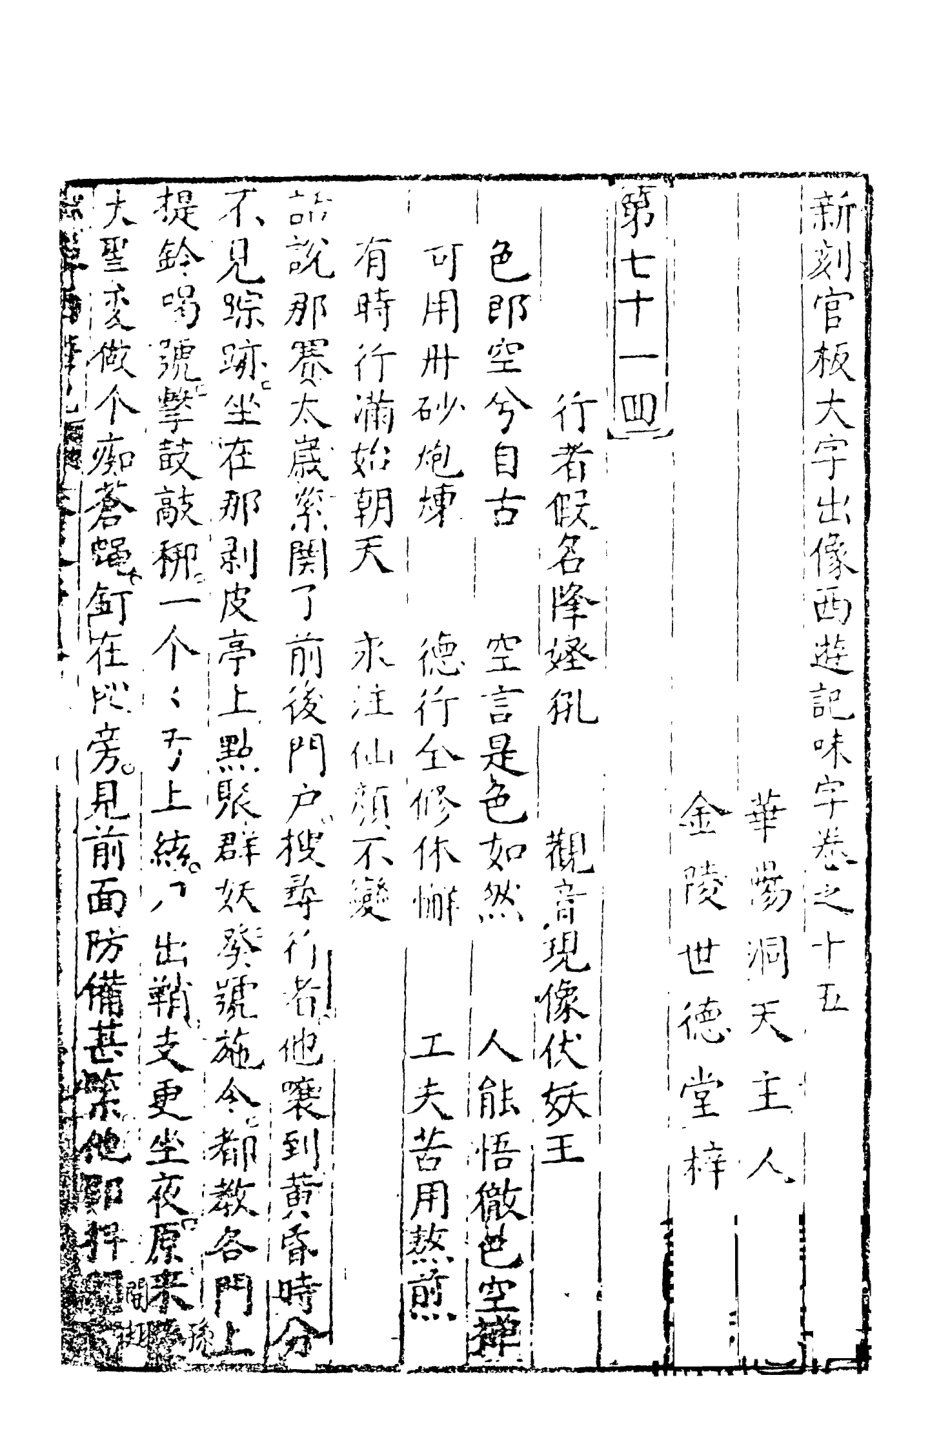 新刻官板大字出像西遊記味字卷之十五
華陽洞天主人
金陵世德堂梓
第七十一囬
行者假名降怪犼　觀音現像伏妖王
色即空兮自古　空言是色如然　人能悟徹色空禪
可用丹砂炮煉　德行全修休懈　工夫苦用熬煎
有時行滿始朝天　永注仙顏不變
話說那賽太歲緊関了前後門户搜尋行者他嚷到黄昏時分
不見踪跡坐在那剥皮亭上點聚群妖發號施令都教各門上
提鈴喝號擊鼓敲梆一个〻弓上絃刀出鞘支更坐夜原來孫
大聖变做个痴蒼蝇釘在門旁見前面防備甚緊他即抻開